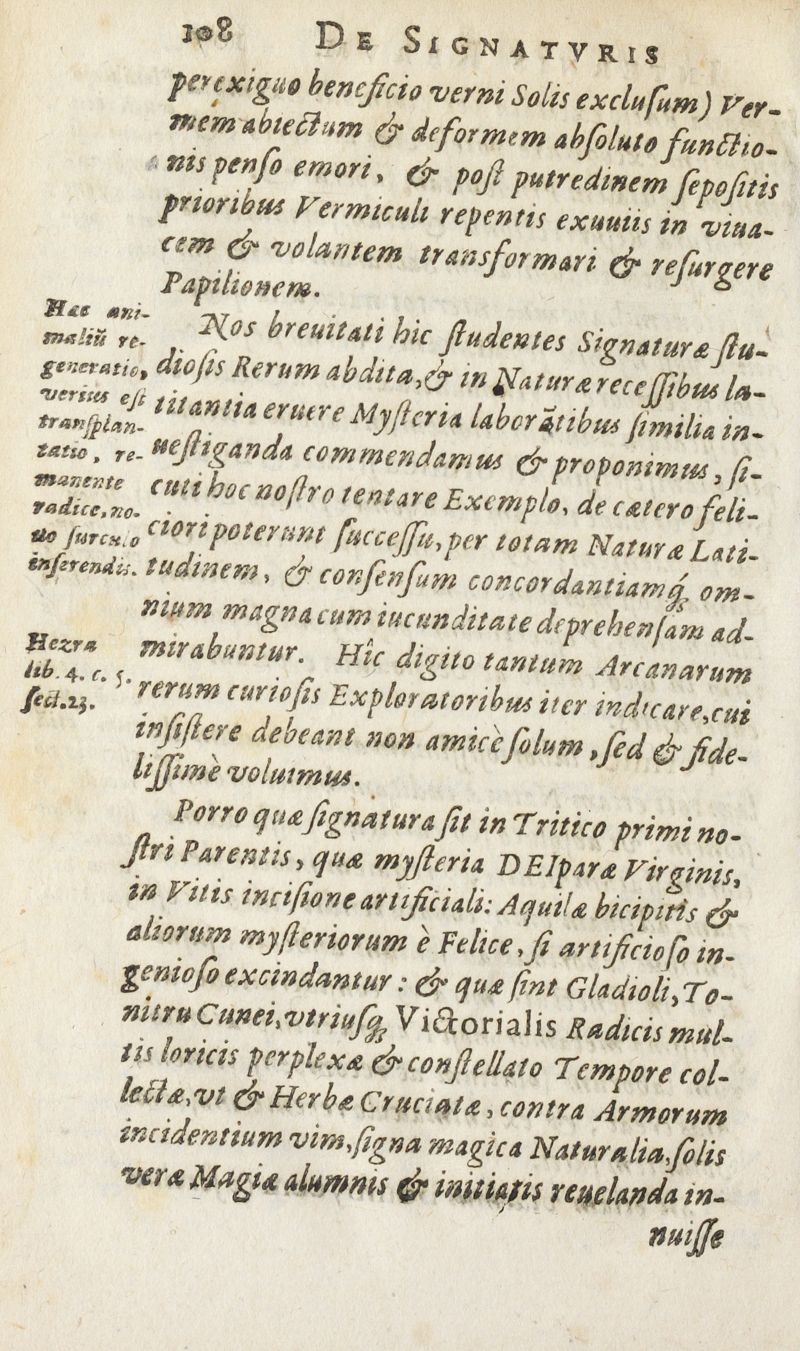 108 DE SIGNATVRIS
perexiguo beneficio verni Solis exclusum) Ver-
mem abiectum & deformem absoluto functio-
nis penso emori, & post putredinem sepositis
prioribus Vermiculi repentis exuuiis in viua-
cem & volantem transformari & resurgere
Papilionem.
Nos breuitati hic studentes Signaturæ stu-
diosis Rerum abdita, & in Naturæ recessibus la-
titantia eruere Mysteria laborãtibus similia in-
uestiganda commendamus & proponimus, si-
cuti hoc nostro tentare Exemplo, de cætero feli-
ciori poterunt successu, per totam Naturæ Lati-
tudinem, & consensum concordantiamq́; om-
nium magna cum iucunditate deprehensam ad-
mirabuntur. Hîc digito tantum Arcanarum
rerum curiosis Exploratoribus iter indicare, cui
insistere debeant non amicè solum, sed & fide-
lissimè voluimus.
Porro quæ signatura sit in Tritico primi no-
stri Parentis, quæ mysteria DEIparæ Virginis,
in Vitis incisione artificiali: Aquilæ bicipitis &
aliorum mysteriorum è Felice, si artificioso in-
genioso excindantur: & quæ sint Gladioli, To-
nitru Cunei, vtriusq; Victorialis Radicis mul-
tis loricis perplexæ & constellato Tempore col-
lectæ, vt & Herbæ Cruciatæ, contra Armorum
incidentium vim, signa magica Naturalia, solis
veræ Magiæ alumnis & initiatis reuelanda in-
nuisse
Hæc ani-
maliũ re-
generatio,
verius est
transplan-
tatio, re-
manente
radice, no-
uo surculo
inserendis.
Hezra
lib. 4. c. 5.
sect. 23.